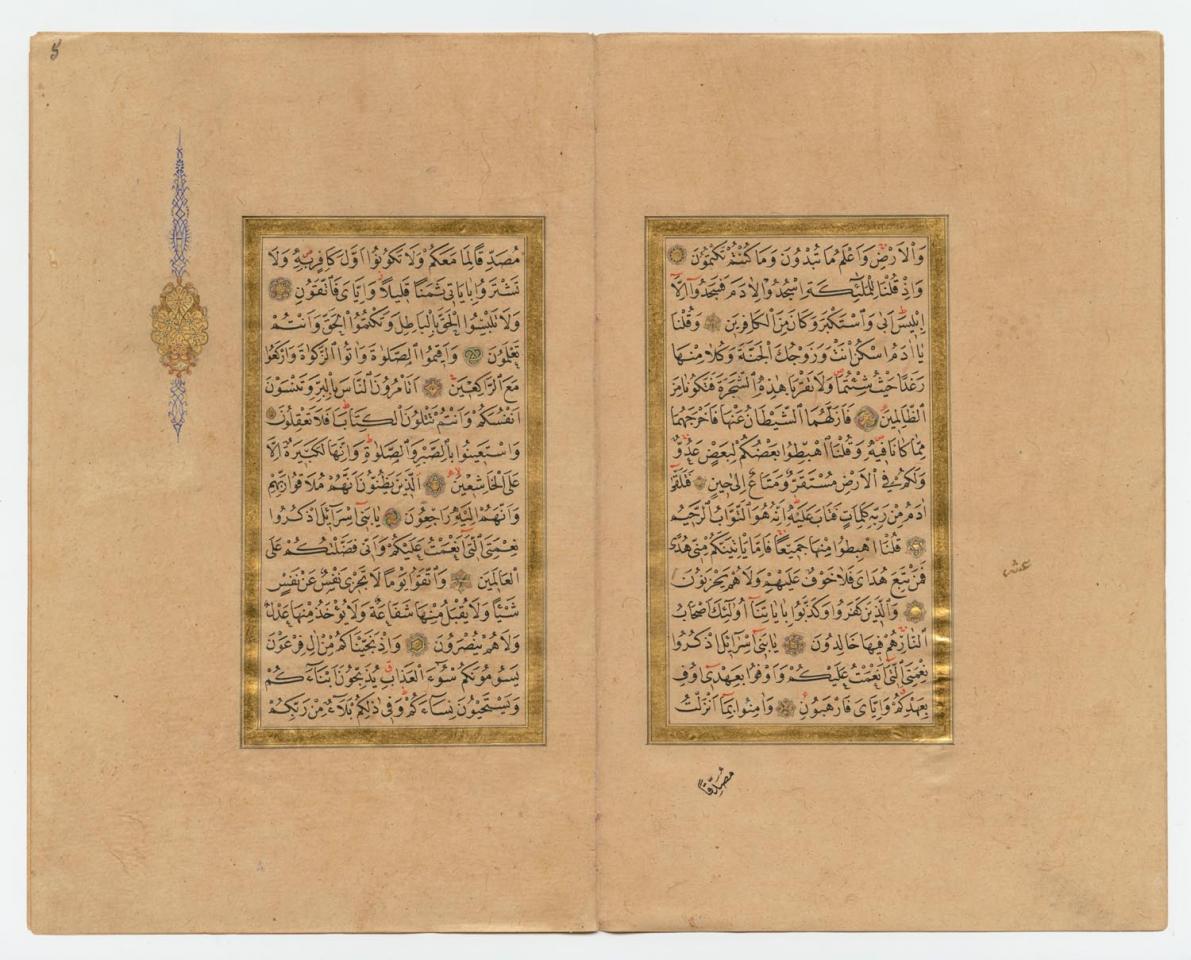 وَالْاَرْضِ وَاَعْلَمُ مَا تُبْدُونَ وَمَا كُنْتُمْ تَكْتُمُونَ
وَاِذْ قُلْنَا لِلْمَلٰٓئِكَةِ اسْجُدُوا لِاٰدَمَ فَسَجَدُٓوا اِلَّٓا
اِبْلِيسَ اَبٰى وَاسْتَكْبَرَ وَكَانَ مِنَ الْكَافِرِينَ وَقُلْنَا
يَٓا اٰدَمُ اسْكُنْ اَنْتَ وَزَوْجُكَ الْجَنَّةَ وَكُلَا مِنْهَا
رَغَدًا حَيْثُ شِئْتُمَا وَلَا تَقْرَبَا هٰذِهِ الشَّجَرَةَ فَتَكُونَا مِنَ
الظَّالِمِينَ فَاَزَلَّهُمَا الشَّيْطَانُ عَنْهَا فَاَخْرَجَهُمَا
مِمَّا كَانَا فِيهِ وَقُلْنَا اهْبِطُوا بَعْضُكُمْ لِبَعْضٍ عَدُوٌّ
وَلَكُمْ فِي الْاَرْضِ مُسْتَقَرٌّ وَمَتَاعٌ اِلٰى حِينٍ فَتَلَقّٰٓى
اٰدَمُ مِنْ رَبِّهِ كَلِمَاتٍ فَتَابَ عَلَيْهِ اِنَّهُ هُوَ التَّوَّابُ الرَّحِيمُ
قُلْنَا اهْبِطُوا مِنْهَا جَمِيعًا فَاِمَّا يَاْتِيَنَّكُمْ مِنِّي هُدًى
فَمَنْ تَبِعَ هُدَايَ فَلَا خَوْفٌ عَلَيْهِمْ وَلَا هُمْ يَحْزَنُونَ
وَالَّذِينَ كَفَرُوا وَكَذَّبُوا بِاٰيَاتِنَا اُولٰٓئِكَ اَصْحَابُ
النَّارِ هُمْ فِيهَا خَالِدُونَ يَا بَنِٓي اِسْرَائِلَ اذْكُرُوا
نِعْمَتِيَ الَّتِٓي اَنْعَمْتُ عَلَيْكُمْ وَاَوْفُوا بِعَهْدِٓي اُوفِ
بِعَهْدِكُمْ وَاِيَّايَ فَارْهَبُونِ وَاٰمِنُوا بِمَٓا اَنْزَلْتُ
مُصَدِّقًا
عشر
5
مُصَدِّقًا لِمَا مَعَكُمْ وَلَا تَكُونُٓوا اَوَّلَ كَافِرٍ بِهِ وَلَا
تَشْتَرُوا بِاٰيَاتِي ثَمَنًا قَلِيلًا وَاِيَّايَ فَاتَّقُونِ
وَلَا تَلْبِسُوا الْحَقَّ بِالْبَاطِلِ وَتَكْتُمُوا الْحَقَّ وَاَنْتُمْ
تَعْلَمُونَ وَاَقِيمُوا الصَّلٰوةَ وَاٰتُوا الزَّكٰوةَ وَارْكَعُوا
مَعَ الرَّاكِعِينَ اَتَاْمُرُونَ النَّاسَ بِالْبِرِّ وَتَنْسَوْنَ
اَنْفُسَكُمْ وَاَنْتُمْ تَتْلُونَ الْكِتَابَ اَفَلَا تَعْقِلُونَ
وَاسْتَعِينُوا بِالصَّبْرِ وَالصَّلٰوةِ وَاِنَّهَا لَكَبِيرَةٌ اِلَّا
عَلَى الْخَاشِعِينَ اَلَّذِينَ يَظُنُّونَ اَنَّهُمْ مُلَاقُوا رَبِّهِمْ
وَاَنَّهُمْ اِلَيْهِ رَاجِعُونَ يَا بَنِٓي اِسْرَائِلَ اذْكُرُوا
نِعْمَتِيَ الَّتِٓي اَنْعَمْتُ عَلَيْكُمْ وَاَنِّي فَضَّلْتُكُمْ عَلَى
الْعَالَمِينَ وَاتَّقُوا يَوْمًا لَا تَجْزِي نَفْسٌ عَنْ نَفْسٍ
شَيْئًا وَلَا يُقْبَلُ مِنْهَا شَفَاعَةٌ وَلَا يُؤْخَذُ مِنْهَا عَدْلٌ
وَلَا هُمْ يُنْصَرُونَ وَاِذْ نَجَّيْنَاكُمْ مِنْ اٰلِ فِرْعَوْنَ
يَسُومُونَكُمْ سُٓوءَ الْعَذَابِ يُذَبِّحُونَ اَبْنَٓاءَكُمْ
وَيَسْتَحْيُونَ نِسَٓاءَكُمْ وَفِي ذٰلِكُمْ بَلَٓاءٌ مِنْ رَبِّكُمْ